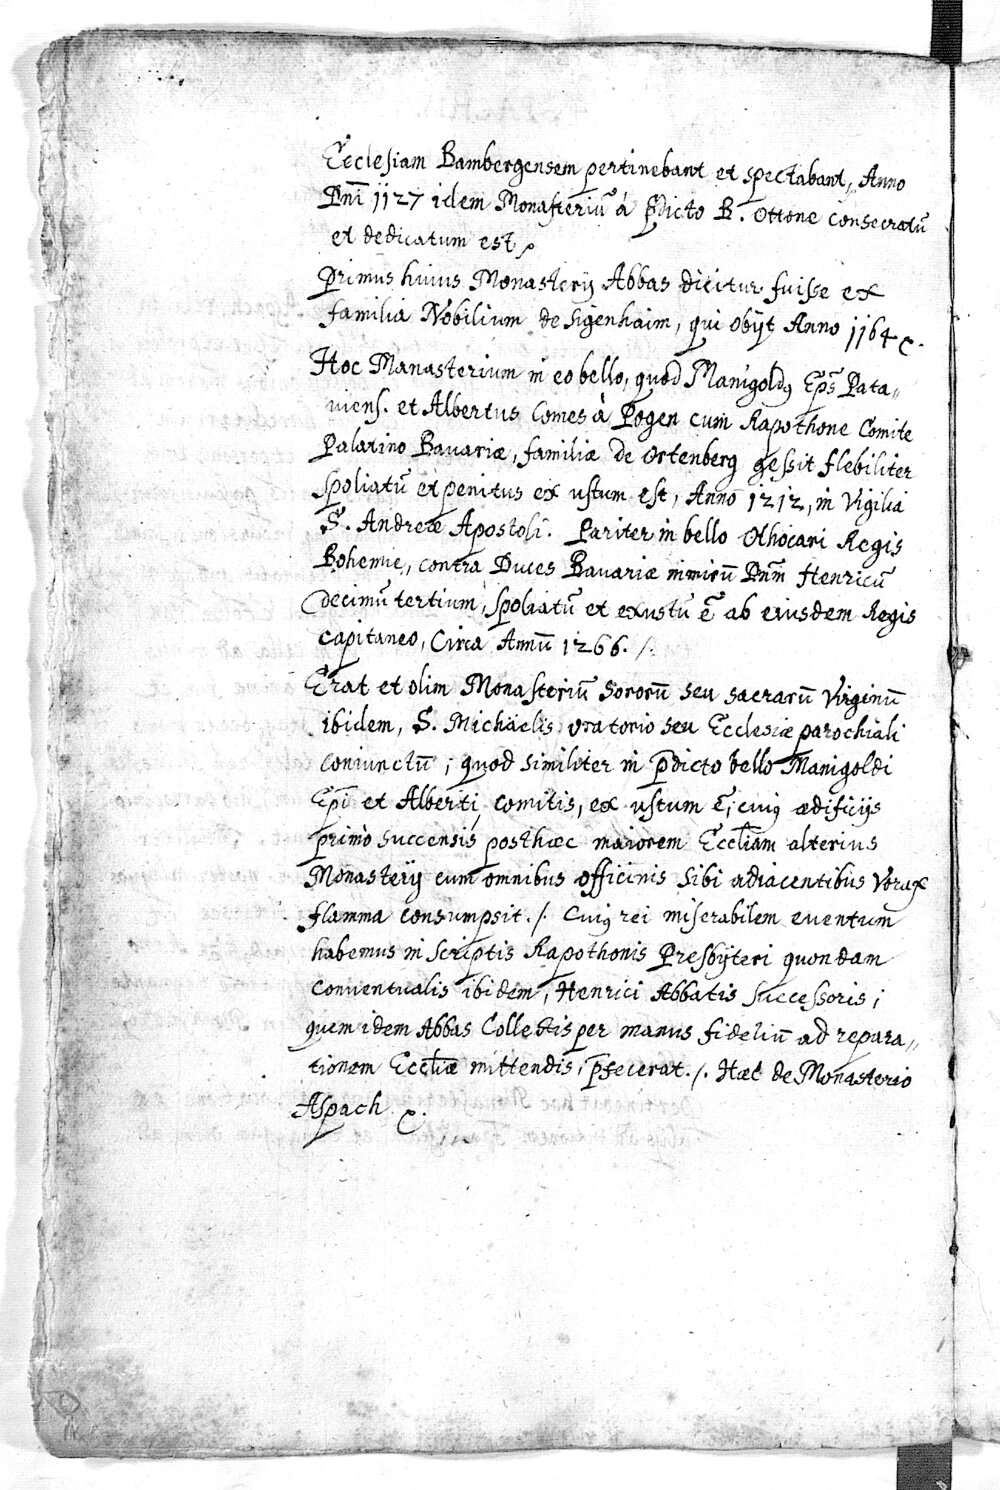 Ecclesiam Bambergensem pertinebant et spectabant, Anno
Dn̄i 1127 idem Monasteriū à p̄dicto B. Ottone consecratū
et dedicatum est.
Primus huius Monasterij Abbas dicitur fuisse ex
familia Nobilium de Sigenhaim, qui obijt Anno 1164
Hoc Manasterium in eo bello, quod Manigoldꝰ Ep̄s Pata„
uiens. et Albertus Comes à Pogen cum Rapothone Comite
Palatino Bauariæ, familiæ de Ortenberg gessit flebiliter
spoliatū et penitus ex ustum est, Anno 1212, in Vigilia
S. Andreæ Apostoli. Pariter in bello Othocari Regis
Bohemie, contra Duces Bauariæ inimicū Dn̄m Henricū
decimū tertium, spoliatū et exustū ē ab eiusdem Regis
capitaneo, Circa Annū 1266. /.
Erat et olim Monasteriū Sororū seu sacrarū Virginū
ibidem, S. Michaelis oratorio seu Ecclesiæ parochiali
coniunctū; quod similiter in p̄dicto bello Manigoldi
Ep̄i et Alberti comitis, ex ustum ē, cuiꝰ ædificijs
primò succensis posthæc maiorem Eccl̄iam alterius
Monasterij cum omnibus officinis sibi adiacentibus Vorax
flamma consumpsit. /. Cuiꝰ rei miserabilem euentum
habemus in scriptis Rapothonis Presbyteri quondam
Conuentualis ibidem, Henrici Abbatis successoris;
quem idem Abbas Collectis per manus fideliū ad repara„
tionem Eccl̄iæ mittendis, p̄fecerat. /. Hæc de Monasterio
Aspach